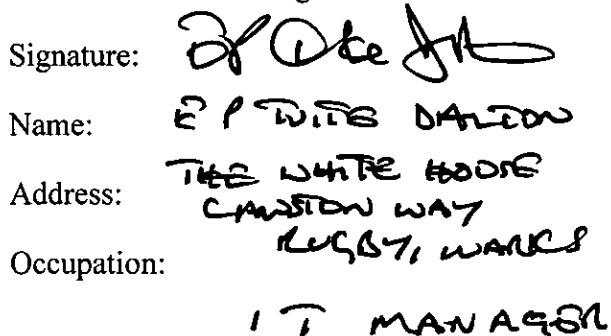 Signature:
Name: E P DALTON
Address: THE WHITE HOUSE
CAWSTON WAY
RUGBY, WARKS
Occupation:
I T MANAGER